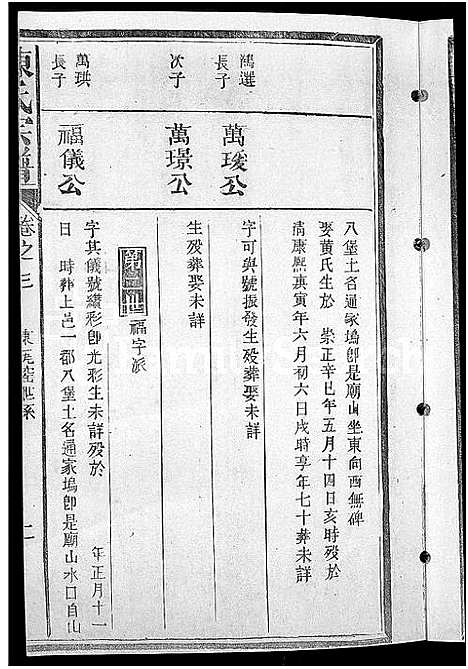 八堡土名通家塢卽是廟山坐東向西無碑
娶黄氏生於 崇正辛巳年五月十四日亥時殁於
淸康熙庚寅年六月初六日戌時享年七十葬未詳
鴻選
長子
萬琰公
字可與號振發生殁葬娶未詳
次子
萬璟公
生殁葬娶未詳
福字派
萬珙
長子
福儀公
字其儀號繼彩卽光彩生未詳殁於 年正月十一
日 時葬上邑一都八堡土名通家塢卽是廟山水口自山
陳氏宗譜
卷之三
二